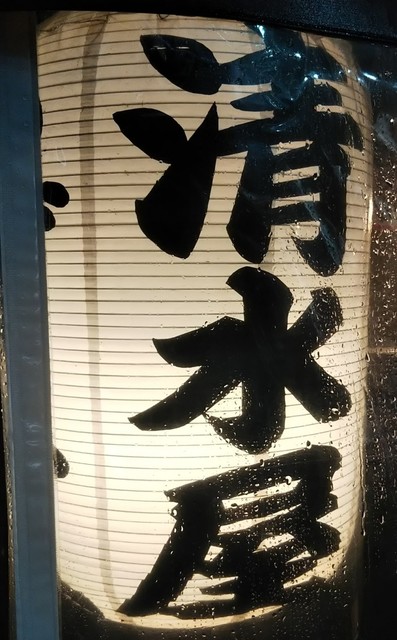 清水屋